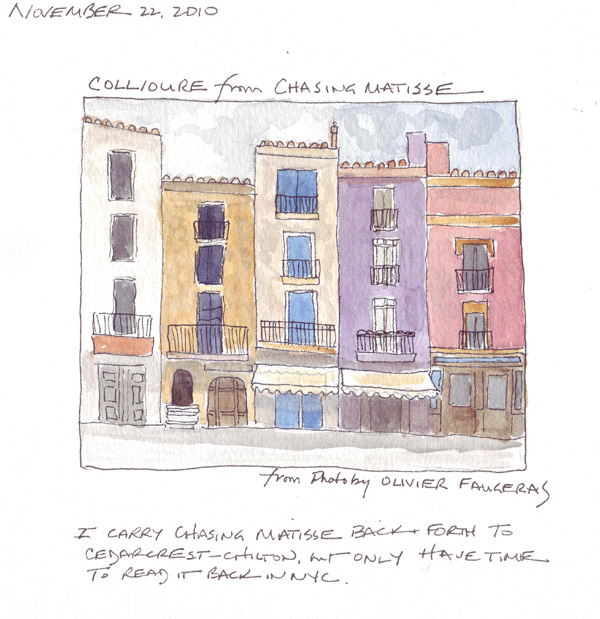 NOVEMBER 22, 2010
COLLIOURE from CHASING MATISSE
from Photo by OLIVIER FAUGERAS
I CARRY CHASING MATISSE BACK + FORTH TO
CEDARCREST-CHILTON, but ONLY HAVE TIME
TO READ IT BACK IN NYC.